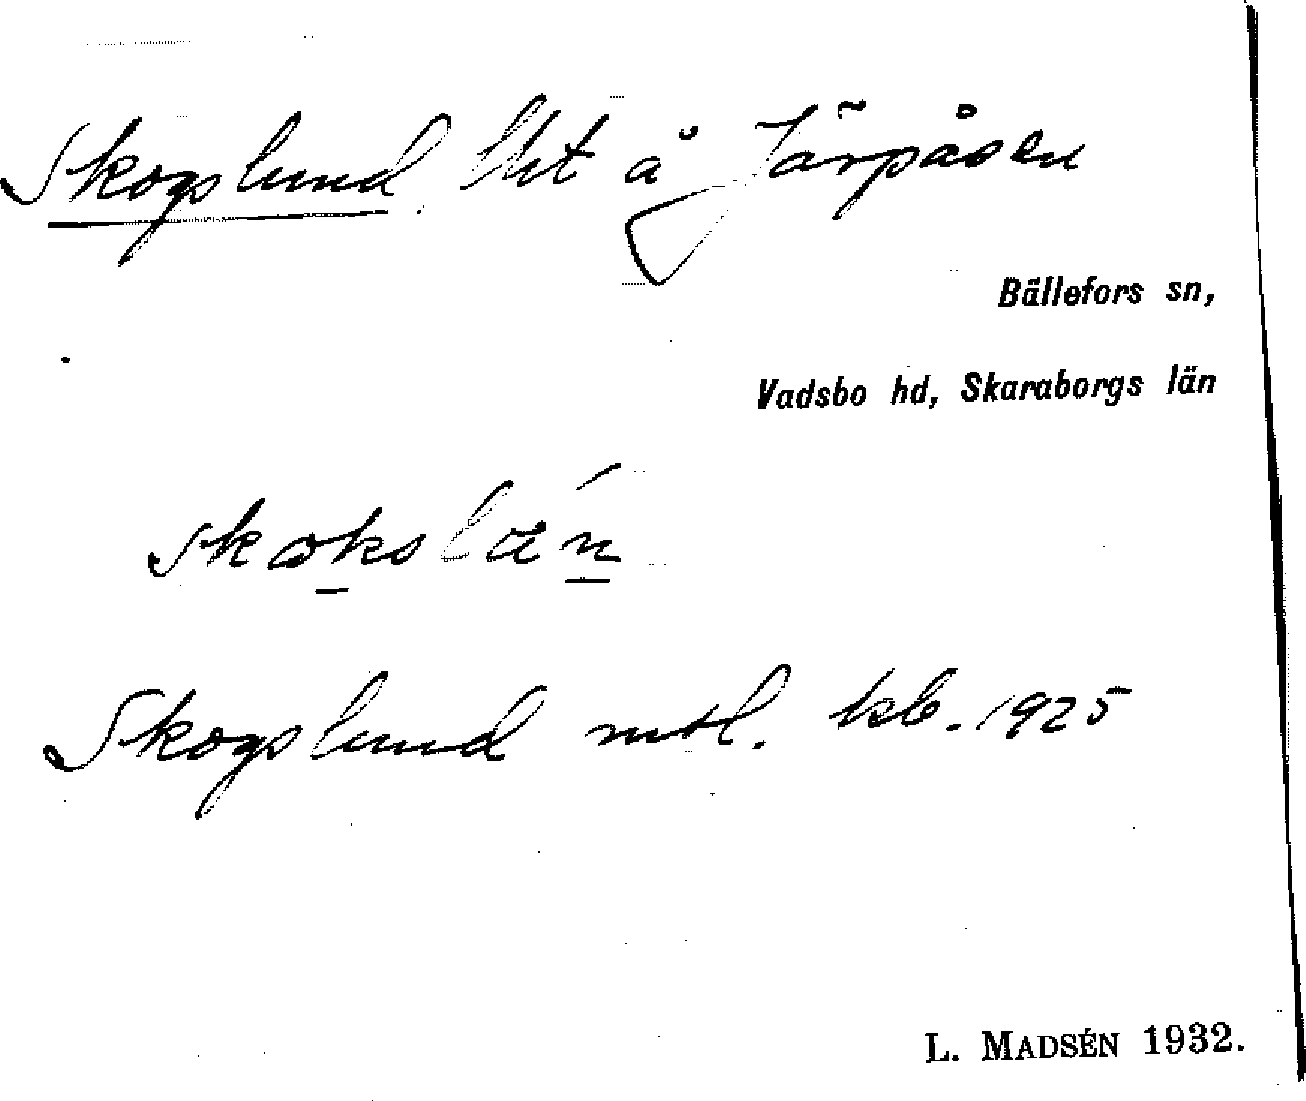 Skogslund lht å Järpåsen
Bällefors sn,
Vadsbo hd, Skaraborgs län
Skogslund mtl. kb. 1925
L. MADSÉN 1932.